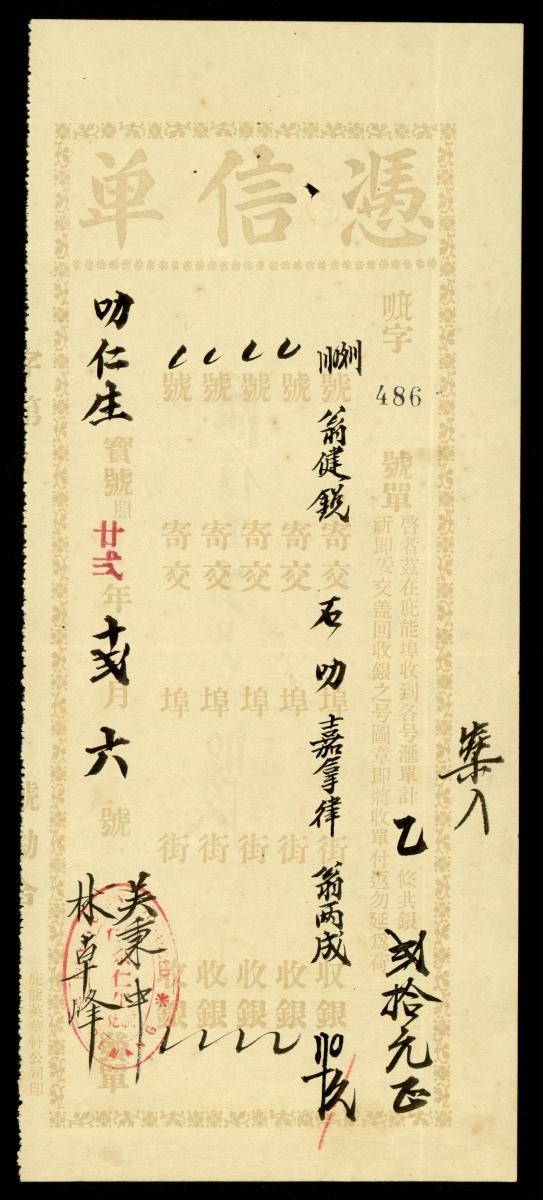 憑信單
唹字486號單
啓者茲在庇能埠收到各号滙單計乙條共銀弍拾元正
祈即妥交盖回收銀之号圖章即將收單付返勿延為荷
案入
號翁健鋭寄交石叻埠嘉拿律街翁兩成收銀
號寄交埠街收銀
號寄交埠街收銀
號寄交埠街收銀
號寄交埠街收銀
叻仁生寶號照
廿弍年十弍月六號
吴秉中
林卓峰
發單
字第
號勘合
庇能英華軒公司印